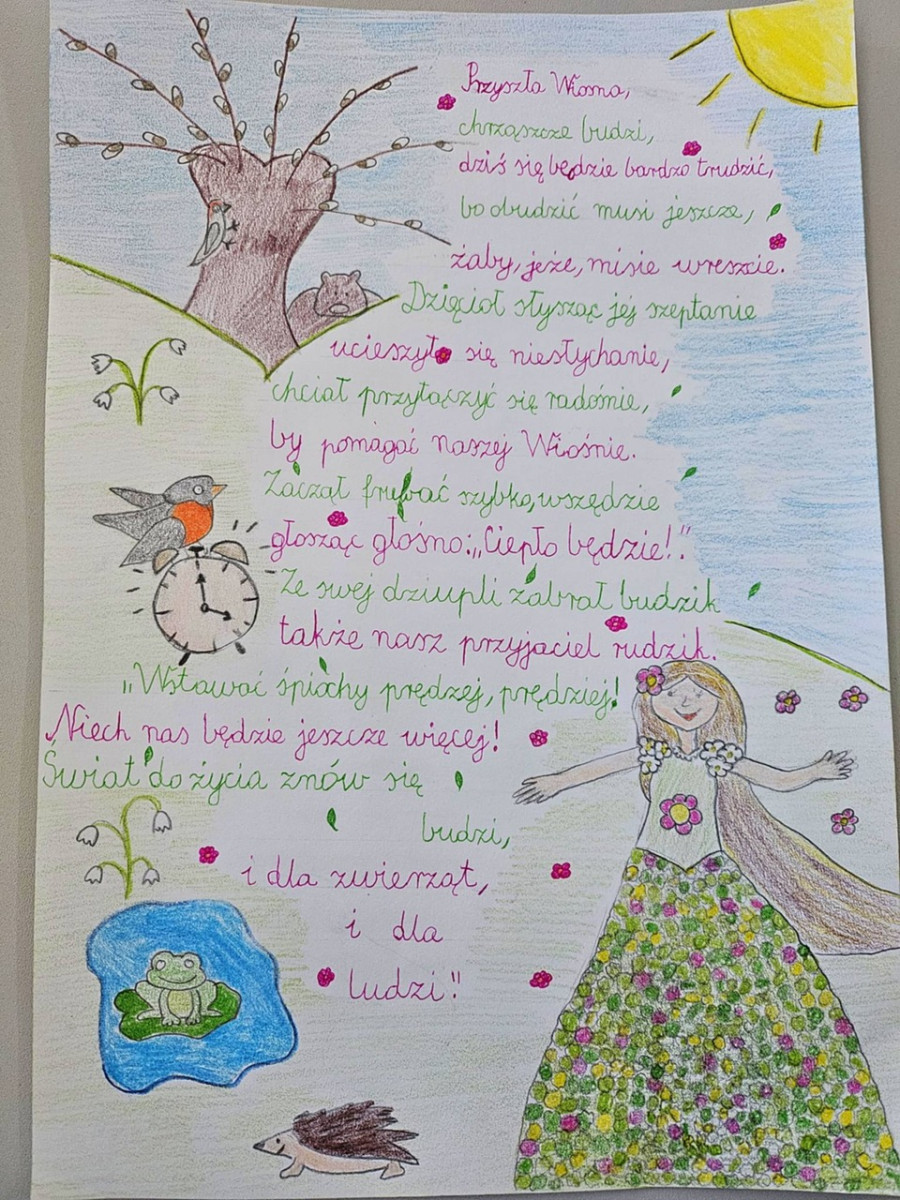 Przyszła Wiosna,
chrząszcze budzi,
dziś się będzie bardzo trudzić,
bo obudzić musi jeszcze,
żaby, jeże, misie wreszcie.
Dzięcioł słysząc jej szeptanie
ucieszył się niesłychanie,
chciał przyłączyć się radośnie,
by pomagać naszej Wiośnie.
Zaczął fruwać szybko, wszędzie
głosząc głośno: „Ciepło będzie!".
Ze swej dziupli zabrał budzik
także nasz przyjaciel rudzik.
„Wstawać śpiochy prędzej, prędziej!
Niech nas będzie jeszcze więcej!
Świat do życia znów się
budzi,
i dla zwierząt,
i dla
ludzi"